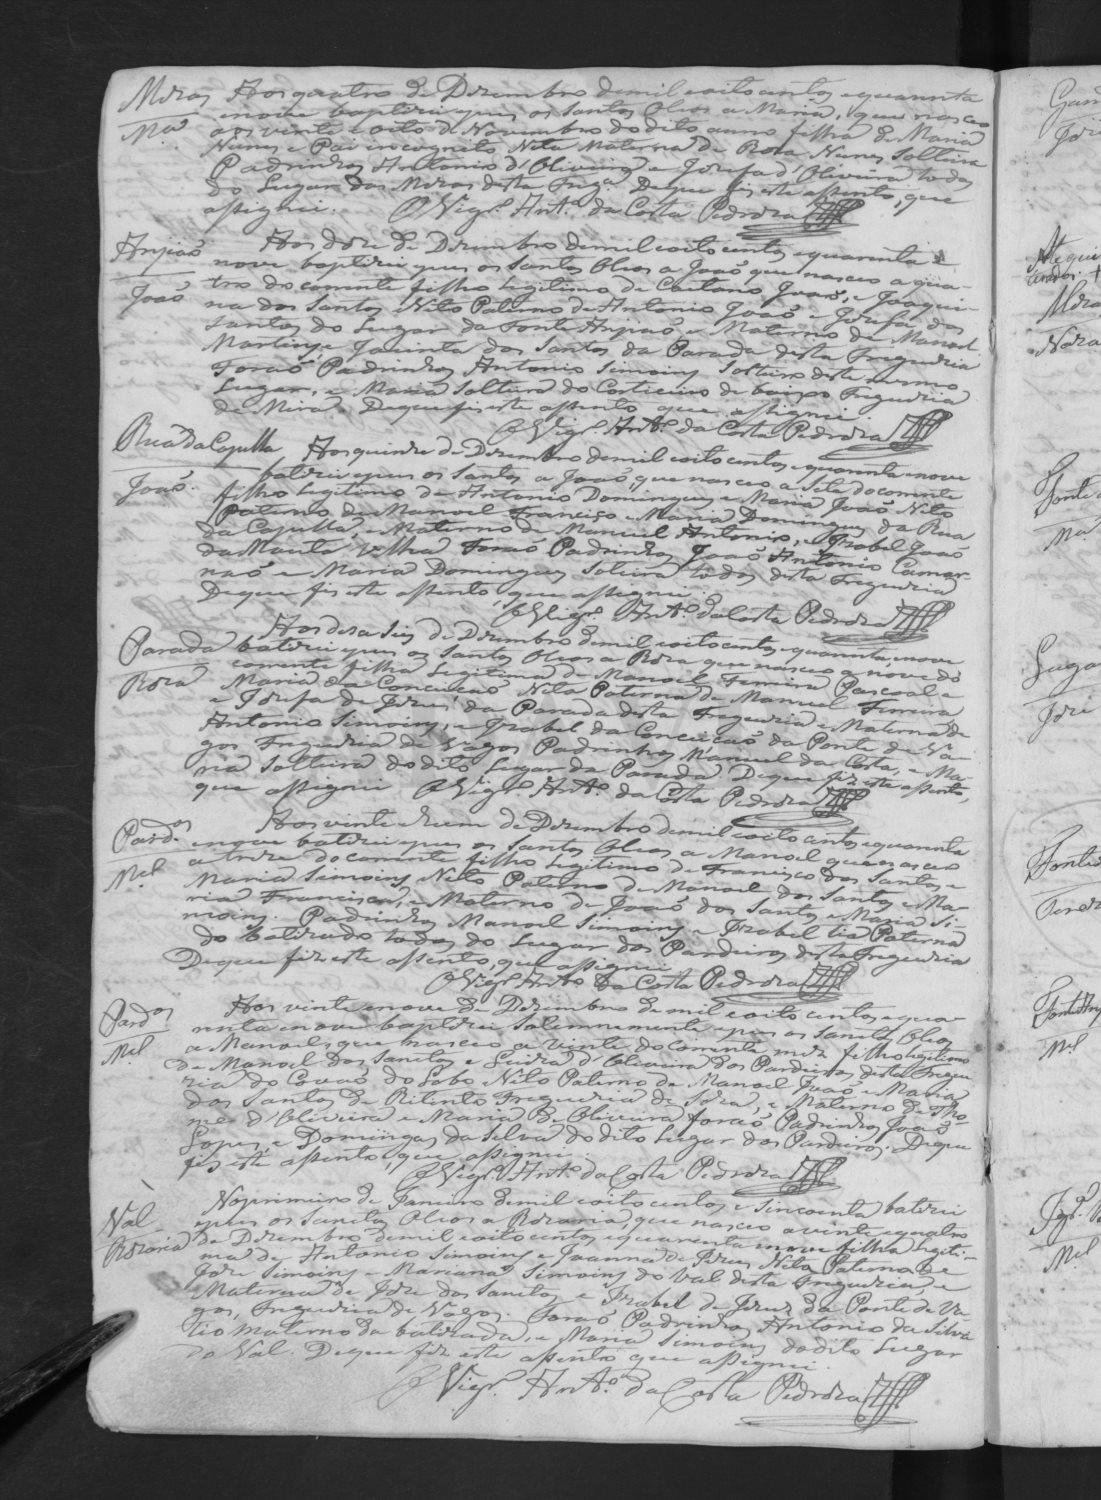 Miras
Mª
Aos quatro de Dezembro de mil e oito centos e quarenta
e nove baptizei e pus os Santos Oleos a Maria, que nasceo
aos vinte e oito de Novembro do dito anno filha de Maria
Nunes e Pai incognito Neta Materna de Rosa Nunes Solteira
Padrinhos Antonio d'Oliveira e Jozefa d'Oliveira todos
do Lugar das Miras desta Fregª. De que fis este assento, que
assignei. O Vigr.º Antº. da Costa Pedroza
Anjeaõ
Joaõ
Aos doze de Dezembro de mil e oito centos e quarenta e
nove baptizei e pus os Santos Oleos a Joaõ que nasceo a qua-
tro do corrente filho legitimo de Caetano Joaõ, e Joaqui-
na dos Santos Neto Paterno de Antonio Joaõ e Jozefa dos
Santos do Lugar da Fonte Anjeaõ e Materno de Manoel
Martins e Jacinta dos Santos da Parada desta Freguezia
Foraõ Padrinhos Antonio Simoins Solteiro deste mesmo
Lugar, e Maria Solteira do Corticeiro de baixo Freguezia
de Mira. De que fis este assento que assignei
O Vigr.º Antº. da Costa Pedroza
Rua da Capella
Joaõ.
Aos quinze de Dezembro de mil e oito centos e quarenta e nove
batizei e pus os Santos a Joaõ, que nasceo a sete do corrente
filho legitimo de Antonio Domingues e Maria Joaõ Neto
Paterno de Manoel Francisco e Maria Domingues da Rua
da Capella, e Materno de Manuel Antonio, e Izabel Joaõ
da Manta Velha Foraõ Padrinhos Joaõ Antonio Camar-
naõ e Maria Domingues Solteira todos desta Freguezia
De que fis este assento, que assignei.
O Vigr.º Antº. da Costa Pedroza
Parada
Roza
Aos deza seis de Dezembro de mil e oito centos e quarenta, e nove
batizei e pus os Santos Oleos a Roza que nasceo a nove do
corrente filha legitima de Manoel Ferreira Pascoal e
Maria da Conceicaõ Neta Paterna de Manuel Ferreira
e Jozefa de Jezus da Parada desta Freguezia e Materna de
Antonio Simoins, e Izabel da Conceicaõ da Ponte de Va-
gos Freguezia de Vagos Padrinhos Manuel da Costa, e Ma-
ria Solteira do dito Lugar da Parada De que fiz este assento,
que assignei O Vigr.º Antº. da Costa Pedroza
Pardºs
Mel
Aos vinte e hum de Dezembro de mil e oito centos e quarenta
e nove batizei e pus os Santos Oleos a Manoel que nasceo
a treze do corrente filho legitimo de Francisco dos Santos, e
Maria Simoins Neto Paterno de Manoel dos Santos e Ma-
ria Francisca, e Materno de Joaõ dos Santos e Maria Si-
moins. Padrinhos Manoel Simoins e Izabel tia Paterna
do batizado todos do Lugar dos Pardieiros desta Freguezia
De que fiz este assento, que assignei
O Vigr.º Antº. da Costa Pedroza
Pardºs
Mel
Aos vinte e nove de Dezembro de mil e oito centos e qua-
renta e nove baptizei Solemnemente e pus os Santos Oleos
a Manoel, que nasceo a vinte do corrente mez filho legitimo
de Manoel dos Santos e Luiza d'Oliveira dos Pardieiros desta Fregue
zia do Covaõ do Lobo Neto Paterno de Manoel Joaõ e Maria
dos Santos de Ritinto Freguezia de Soza, e Materno de Tho-
me d'Oliveira e Maria de Oliveira foraõ Padrinhos Joaõ
Lopes, e Domingas da Silva do dito Lugar dos Pardieiros. De que
fis este assento, que assignei
O Vigr.º Antº. da Costa Pedroza
Val
Rozaria
No primeiro de Janeiro de mil e oito centos e sincoenta batizei
e pus os Santos Oleos a Rozaria, que nasceo a vinte e quatro
de Dezembro de mil e oito centos e quarenta e nove filha legiti-
ma de Antonio Simoins, e Joanna de Jezus Neta Paterna de
Joze Simoins e Marianna Simoins do Val desta Freguezia, e
Materna de Joze dos Santos e Izabel de Jezus da Ponte de Va-
gos, Freguezia de Vagos. Foraõ Padrinhos Antonio da Silva
Tio Materno da batizada, e Maria Simoins do dito Lugar
do Val. De que fiz este assento que assignei.
O Vigr.º Antº. da Costa Pedroza